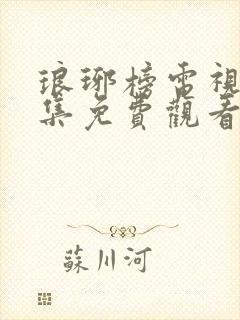 琅琊榜電視
集免費觀看
蘇川河